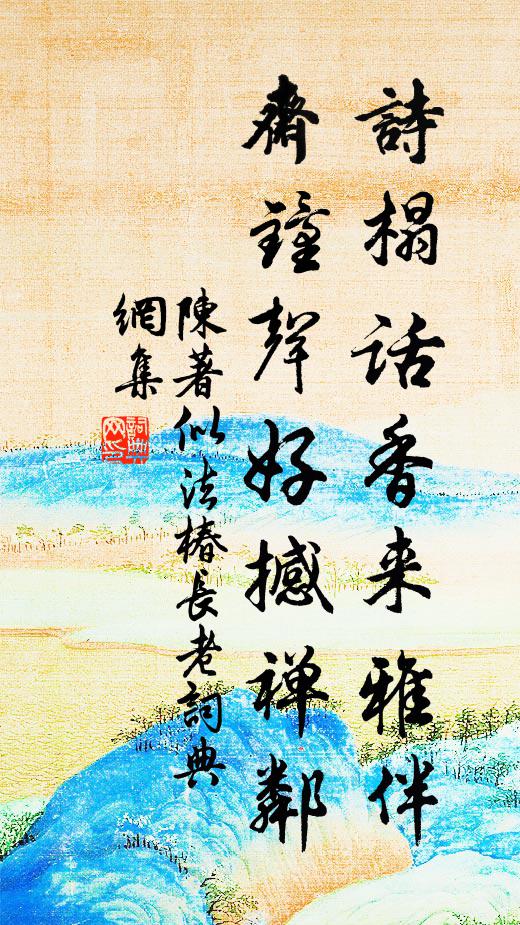 詩榻话香来雅伴
齋鐘聲好撼禅鄰
陳著似法椿長老詞典
網集
詞典
网集